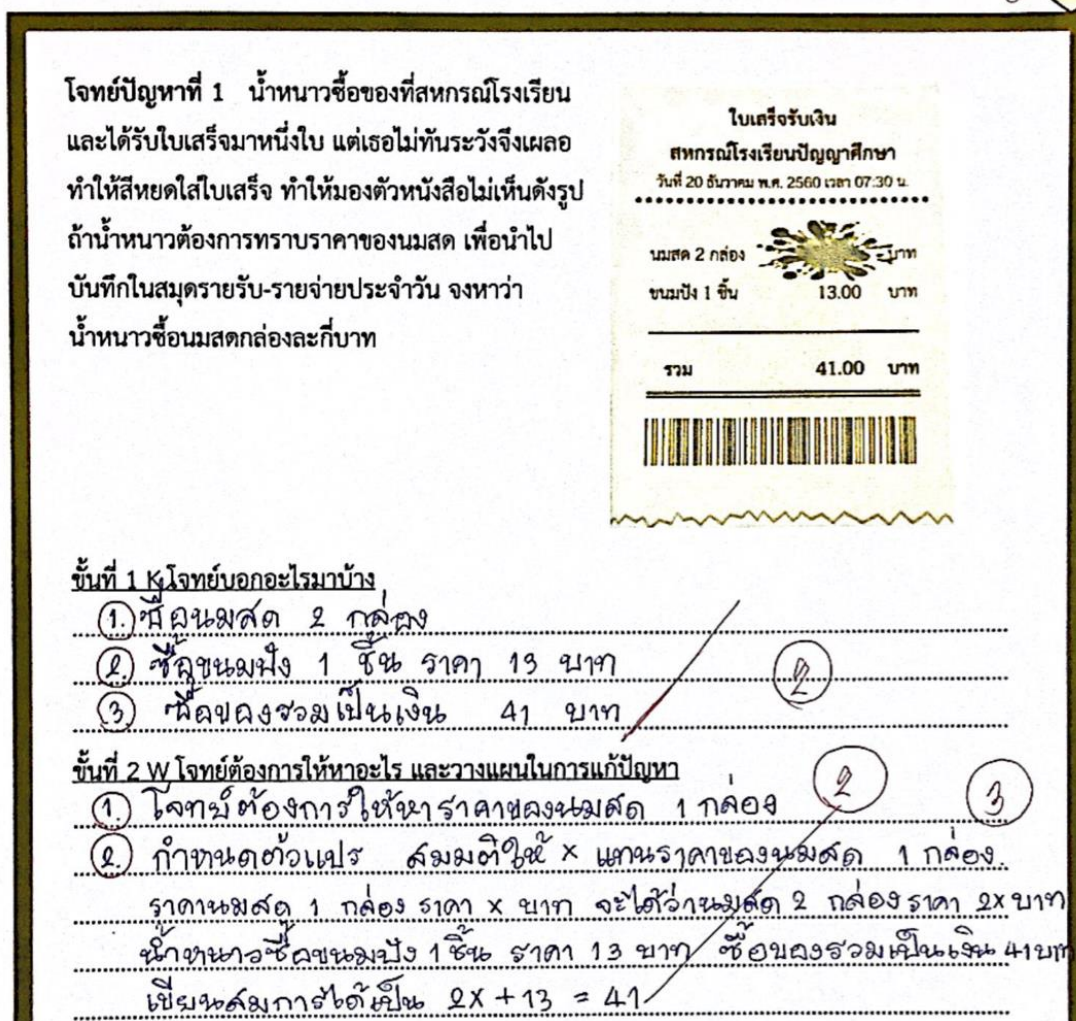 โจทย์ปัญหาที่ 1 น้ำหนาวซื้อของที่สหกรณ์โรงเรียน
และได้รับใบเสร็จมาหนึ่งใบ แต่เธอไม่ทันระวังจึงเผลอ
ทำให้สีหยดใส่ใบเสร็จ ทำให้มองตัวหนังสือไม่เห็นดังรูป
ถ้าน้ำหนาวต้องการทราบราคาของนมสด เพื่อนำไป
บันทึกในสมุดรายรับ-รายจ่ายประจำวัน จงหาว่า
น้ำหนาวซื้อนมสดกล่องละกี่บาท
ใบเสร็จรับเงิน
สหกรณ์โรงเรียนปัญญาศึกษา
วันที่ 20 ธันวาคม พ.ศ. 2560 เวลา 07:30 น.
นมสด 2 กล่อง บาท
ขนมปัง 1 ชิ้น 13.00 บาท
รวม 41.00 บาท
ขั้นที่ 1 K โจทย์บอกอะไรมาบ้าง
1. ซื้อนมสด 2 กล่อง
2. ซื้อขนมปัง 1 ชิ้น ราคา 13 บาท
2
3. ซื้อของรวมเป็นเงิน 41 บาท
ขั้นที่ 2 W โจทย์ต้องการให้หาอะไร และวางแผนในการแก้ปัญหา
1. โจทย์ต้องการให้หาราคาของนมสด 1 กล่อง 2 3
2. กำหนดตัวแปร สมมติให้ x แทนราคาของนมสด 1 กล่อง.
ราคานมสด 1 กล่อง ราคา x บาท จะได้ว่านมสด 2 กล่อง ราคา 2x บาท
น้ำหนาวซื้อขนมปัง 1 ชิ้น ราคา 13 บาท ซื้อของรวมเป็นเงิน 41 บาท
เขียนสมการได้เป็น 2x + 13 = 41